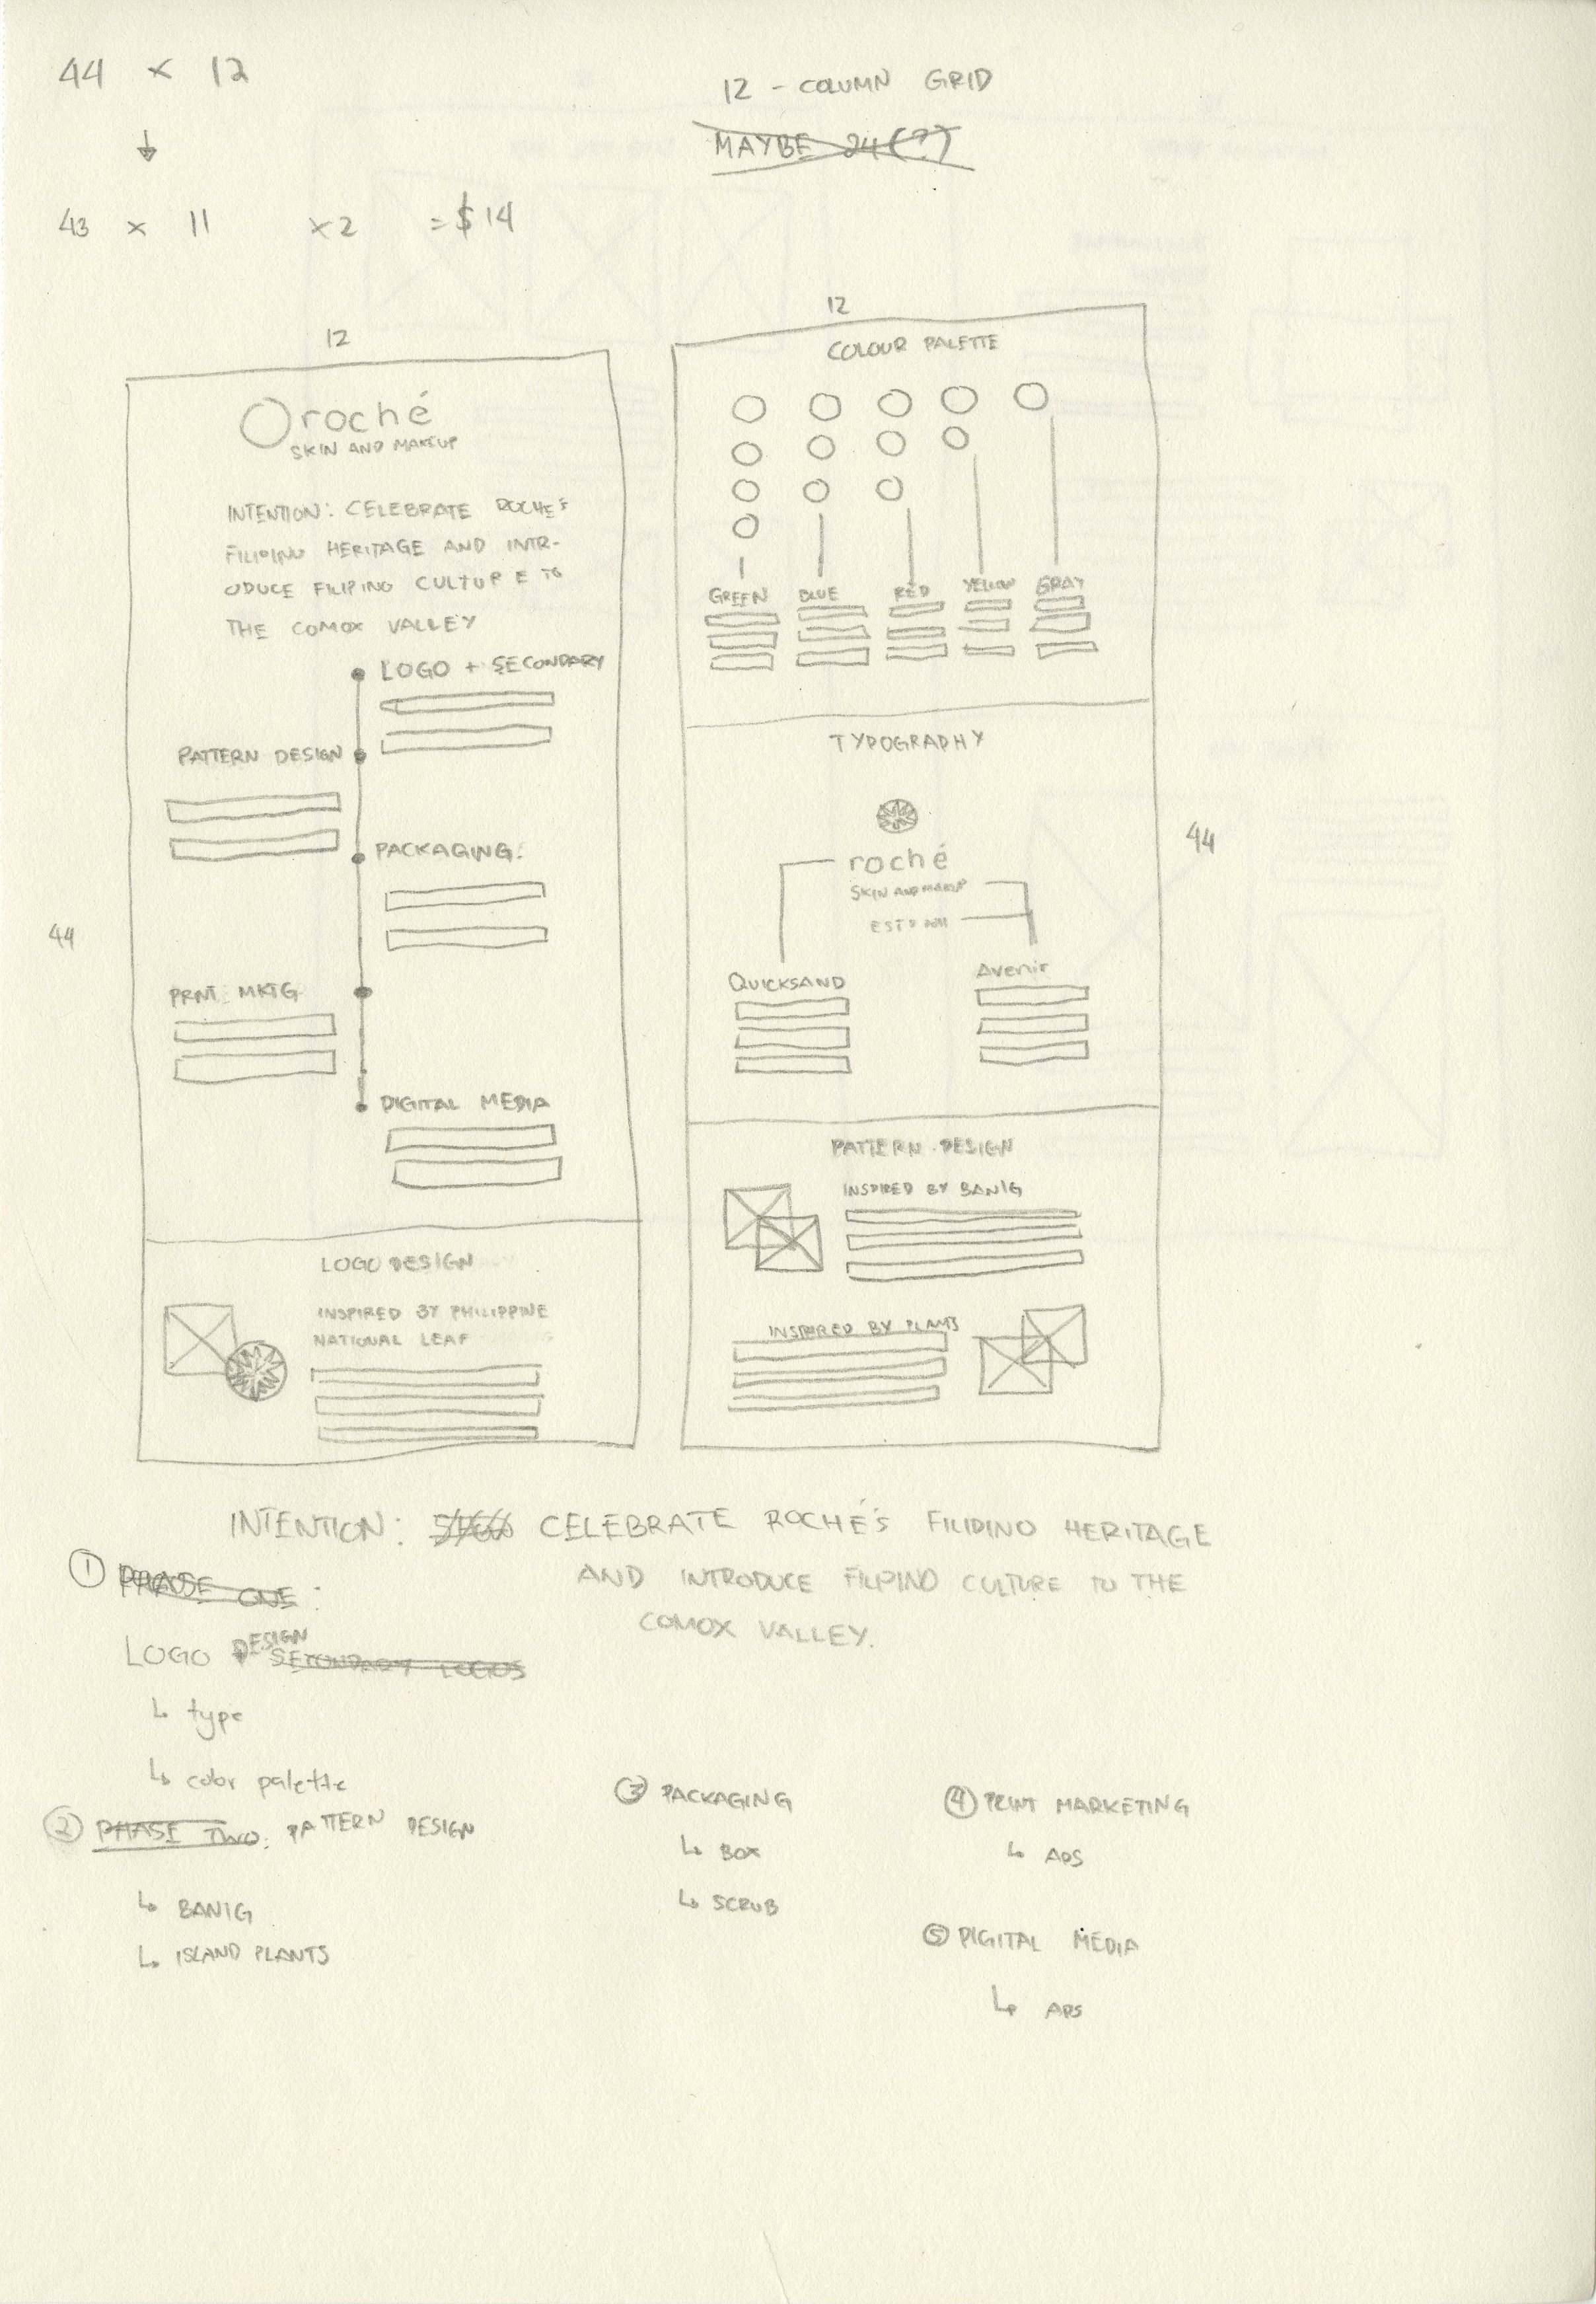 44 × 12
↓
43 × 11 ×2 = $14
12 - COLUMN GRID
MAYBE 24(?)
12
roché
SKIN AND MAKEUP
INTENTION: CELEBRATE ROCHE'S
FILIPINO HERITAGE AND INTR-
ODUCE FILIPINO CULTURE TO
THE COMOX VALLEY
LOGO + SECONDARY
PATTERN DESIGN
PACKAGING:
44
PRNT MKTG
DIGITAL MEDIA
LOGO DESIGN
INSPIRED BY PHILIPPINE
NATIONAL LEAF
12
COLOUR PALETTE
GREEN BLUE RED YELLOW GRAY
TYPOGRAPHY
44
roché
SKIN AND MAKEUP
EST'D
QUICKSAND
Avenir
PATTERN DESIGN
INSPIRED BY BANIG
INSPIRED BY PLANTS
INTENTION: CELEBRATE ROCHÉ'S FILIPINO HERITAGE
AND INTRODUCE FILIPINO CULTURE TO THE
COMOX VALLEY.
① PHASE ONE:
LOGO DESIGN SECONDARY LOGOS
↳ type
↳ color palette
② PHASE TWO: PATTERN DESIGN
↳ BANIG
↳ ISLAND PLANTS
③ PACKAGING
↳ BOX
↳ SCRUB
④ PRINT MARKETING
↳ ADS
⑤ DIGITAL MEDIA
↳ ADS